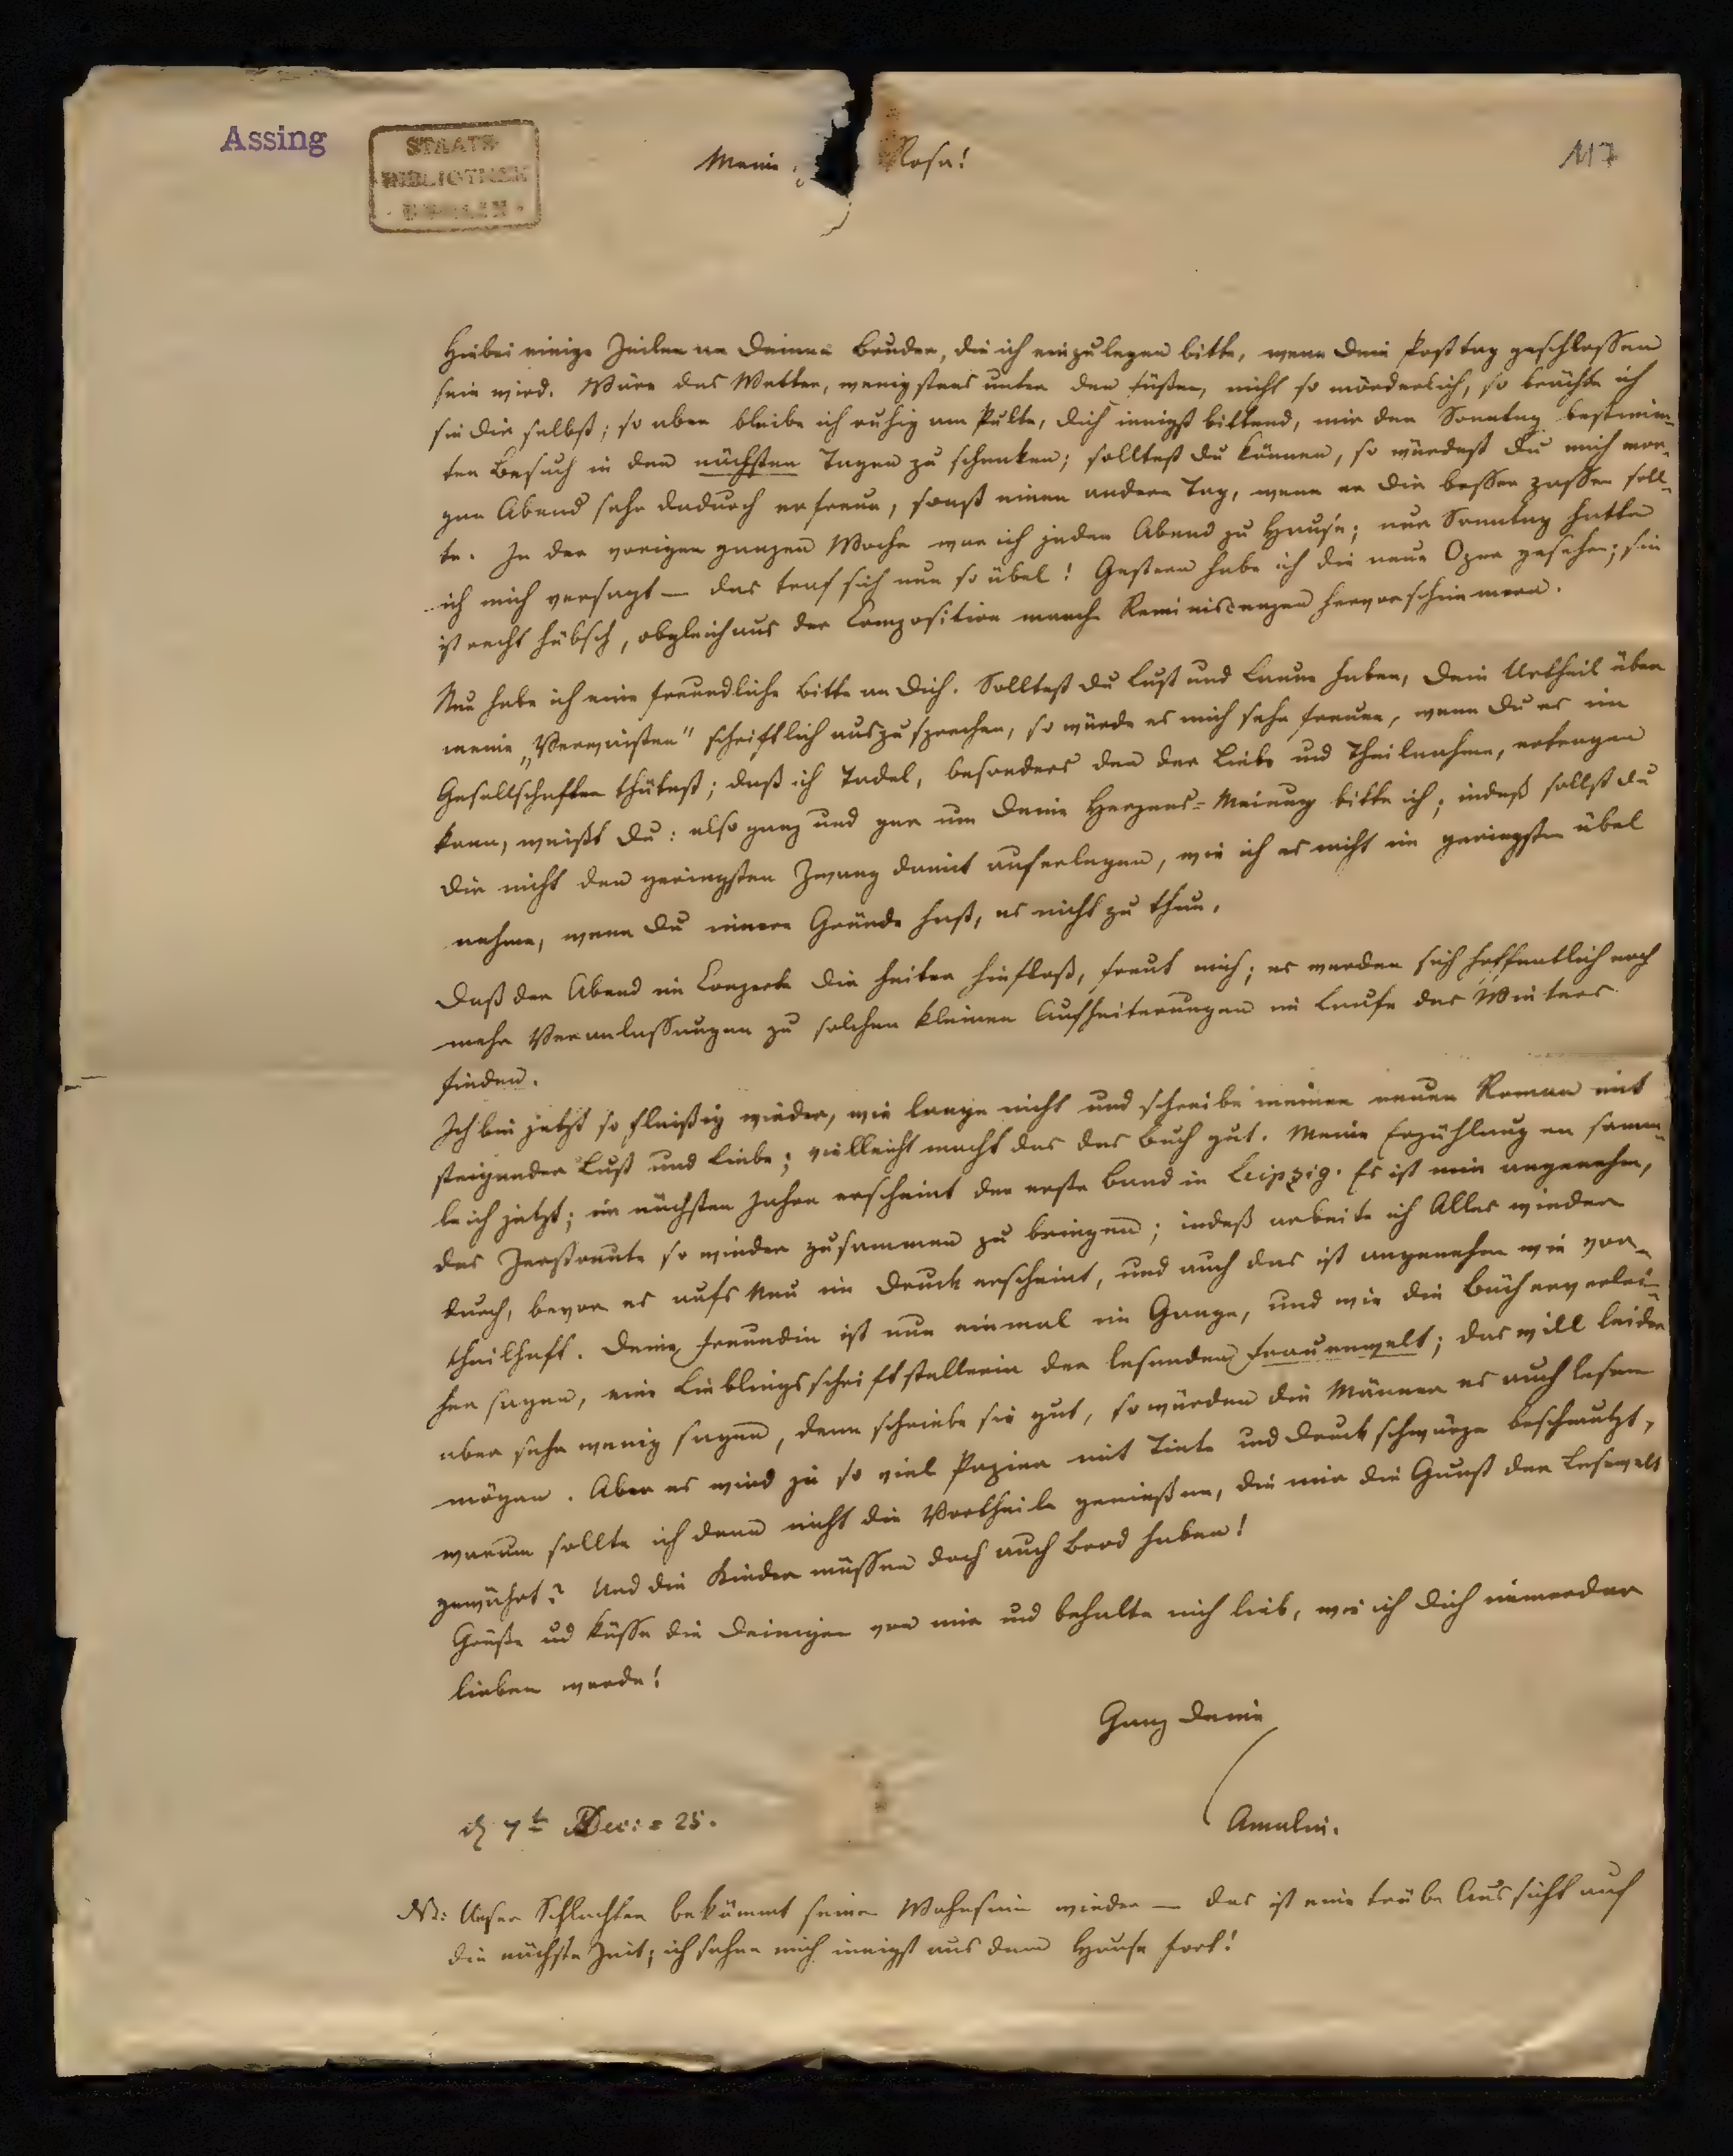 Assing
STAATS-
BIBLIOTHEK
BERLIN
117
Meine Rosa!
Hiebei einige Zeilen an Deinen Bruder, die ich einzulegen bitte, wenn Dein Posttag geschlossen
sein wird. Wäre das Wetter, wenigstens unter den Füßen, nicht so mörderlich, so brächte ich
sie Dir selbst; so aber bleibe ich ruhig am Pulte, Dich innigst bittend, mir den Sonntag bestimm-
ten Besuch in den nächsten Tagen zu schenken; solltest Du können, so würdest Du mich mor-
gen Abend sehr dadurch erfreun, sonst einen andern Tag, wenn er Dir besser passen soll-
te. In der vorigen ganzen Woche war ich jeden Abend zu Hause; nur Sonntag hatte
ich mich versagt — das traf sich nun so übel! Gestern habe ich die neue Oper gesehen; sie
ist recht hübsch, obgleich aus der Composition manche Reminiscenzen hervorschimmern.
Nun habe ich eine freundliche Bitte an Dich. Solltest Du Lust und Laune haben, Dein Urtheil über
meine „Verwaisten" schriftlich auszusprechen, so würde es mich sehr freuen, wenn Du es im
Gesellschafter thätest; daß ich Tadel, besonders den der Liebe und Theilnahme, ertragen
kann, weißt Du: also ganz und gar um Deine Herzens-Meinung bitte ich; indeß sollst Du
Dir nicht den geringsten Zwang damit auferlegen, wie ich es nicht im geringsten übel
nehme, wenn Du innere Gründe hast, es nicht zu thun.
Daß der Abend im Conzerte Dir heiter hinfloß, freut mich; es werden sich hoffentlich noch
mehr Veranlassungen zu solchen kleinen Aufheiterungen im Laufe des Winters
finden.
Ich bin jetzt so fleißig wieder, wie lange nicht und schreibe meinen neuen Roman mit
steigender Lust und Liebe; vielleicht macht das das Buch gut. Meine Erzählungen samm-
le ich jetzt; im nächsten Jahre erscheint der erste Band in Leipzig. Es ist mir angenehm,
das Zerstreute so wieder zusammen zu bringen; indeß arbeite ich Alles wieder
durch, bevor es aufs Neu im Druck erscheint, und auch das ist angenehm wie vor-
theilhaft. Deine Freundin ist nun einmal im Gange, und wie die Bücherverlei-
her sagen, eine Lieblingsschriftstellerin der lesenden Frauenwelt; das will leider
aber sehr wenig sagen, denn schriebe sie gut, so würden die Männer es auch lesen
mögen. Aber es wird ja so viel Papier mit Tinte und Druckschwärze beschmutzt,
warum sollte ich denn nicht die Vortheile genießen, die mir die Gunst der Lesewelt
gewährt? Und die Kinder müssen doch auch Brod haben!
Grüße und küsse die Deinigen von mir und behalte mich lieb, wie ich Dich immerdar
lieben werde!
Ganz Deine
Amalie.
d 7t Dec: = 25.
NS: Unser Schlachter bekömmt seinen Wahnsinn wieder — das ist eine trübe Aussicht auf
die nächste Zeit; ich sehne mich innigst aus dem Hause fort!